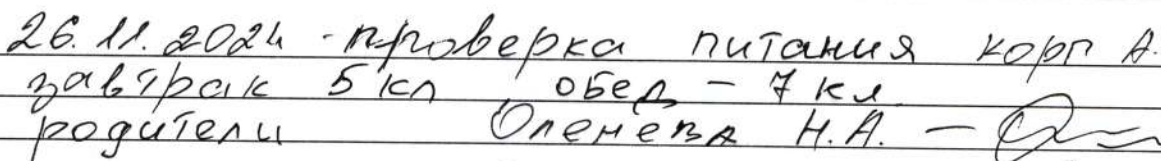 26.11.2024 - проверка питания корп А.
завтрак 5 кл обед - 7 кл
родители Оленева Н.А. -